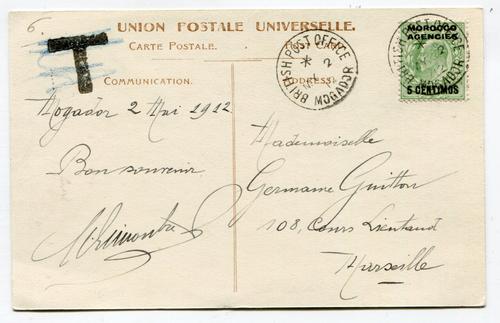 6.
T
UNION POSTALE UNIVERSELLE.
CARTE POSTALE. POST CARD.
COMMUNICATION. ADDRESS.
BRITISH POST OFFICE
2
MOGADOR
MOROCCO
AGENCIES
5 CENTIMOS
BRITISH POST OFFICE
2
MOGADOR
Mogador 2 Mai 1912
Bon souvenir
Mademoiselle
Germaine Guitton
108, Cours Lieutaud
Marseille